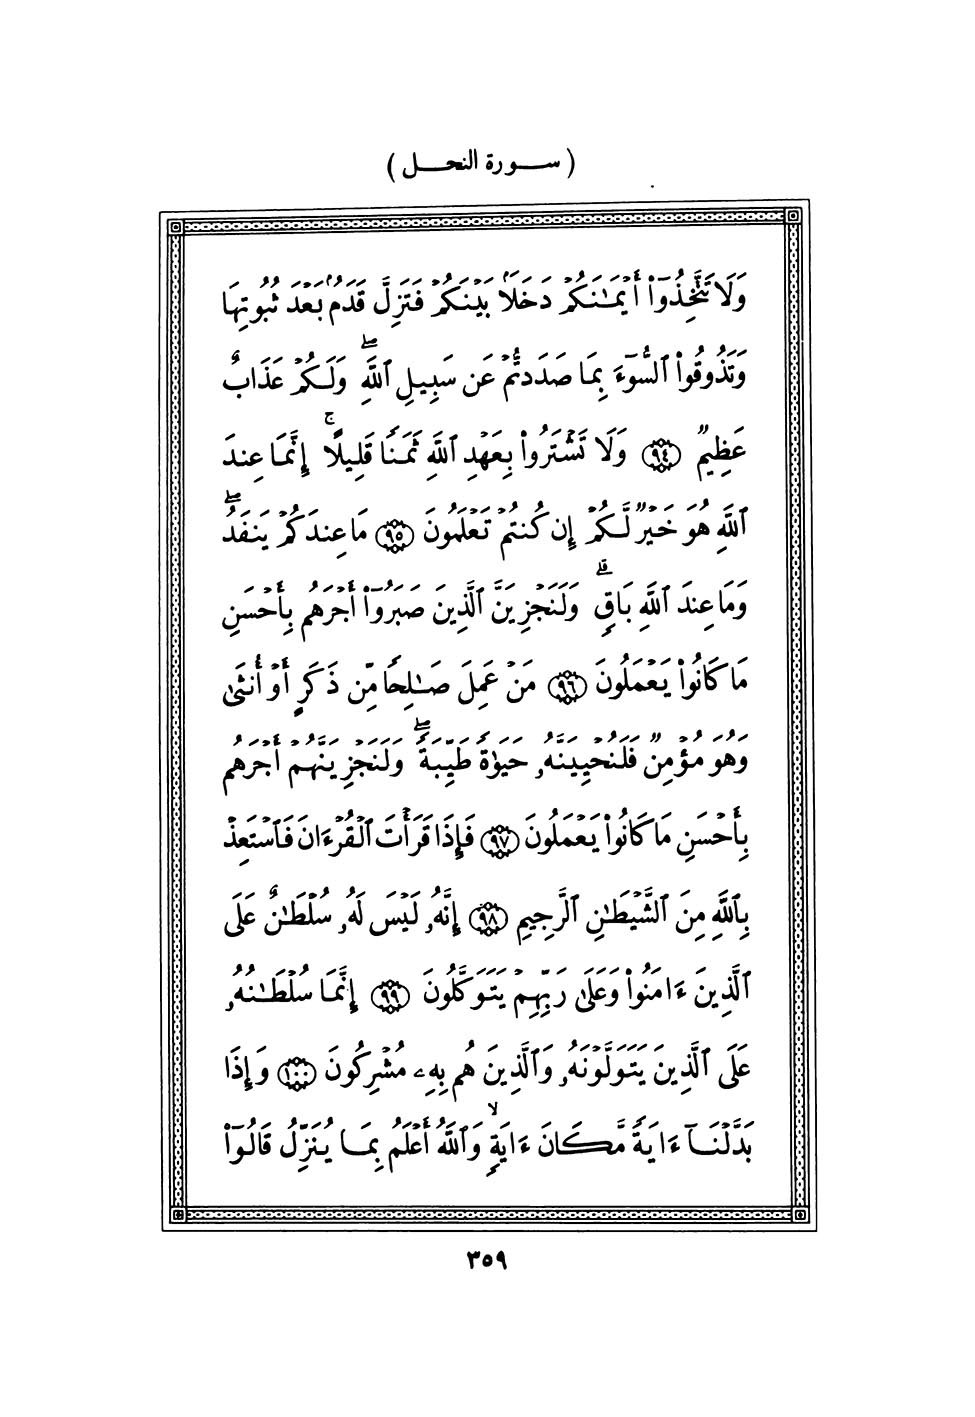 ( ســورة النحــل )
وَلَا تَتَّخِذُوٓا۟ أَيْمَـٰنَكُمْ دَخَلًۢا بَيْنَكُمْ فَتَزِلَّ قَدَمٌۢ بَعْدَ ثُبُوتِهَا
وَتَذُوقُوا۟ ٱلسُّوٓءَ بِمَا صَدَدتُّمْ عَن سَبِيلِ ٱللَّهِ ۖ وَلَكُمْ عَذَابٌ
عَظِيمٌ ﴿٩٤﴾ وَلَا تَشْتَرُوا۟ بِعَهْدِ ٱللَّهِ ثَمَنًا قَلِيلًا ۚ إِنَّمَا عِندَ
ٱللَّهِ هُوَ خَيْرٌ لَّكُمْ إِن كُنتُمْ تَعْلَمُونَ ﴿٩٥﴾ مَا عِندَكُمْ يَنفَدُ ۖ
وَمَا عِندَ ٱللَّهِ بَاقٍ ۗ وَلَنَجْزِيَنَّ ٱلَّذِينَ صَبَرُوٓا۟ أَجْرَهُم بِأَحْسَنِ
مَا كَانُوا۟ يَعْمَلُونَ ﴿٩٦﴾ مَنْ عَمِلَ صَـٰلِحًا مِّن ذَكَرٍ أَوْ أُنثَىٰ
وَهُوَ مُؤْمِنٌ فَلَنُحْيِيَنَّهُۥ حَيَوٰةً طَيِّبَةً ۖ وَلَنَجْزِيَنَّهُمْ أَجْرَهُم
بِأَحْسَنِ مَا كَانُوا۟ يَعْمَلُونَ ﴿٩٧﴾ فَإِذَا قَرَأْتَ ٱلْقُرْءَانَ فَٱسْتَعِذْ
بِٱللَّهِ مِنَ ٱلشَّيْطَـٰنِ ٱلرَّجِيمِ ﴿٩٨﴾ إِنَّهُۥ لَيْسَ لَهُۥ سُلْطَـٰنٌ عَلَى
ٱلَّذِينَ ءَامَنُوا۟ وَعَلَىٰ رَبِّهِمْ يَتَوَكَّلُونَ ﴿٩٩﴾ إِنَّمَا سُلْطَـٰنُهُۥ
عَلَى ٱلَّذِينَ يَتَوَلَّوْنَهُۥ وَٱلَّذِينَ هُم بِهِۦ مُشْرِكُونَ ﴿١٠٠﴾ وَإِذَا
بَدَّلْنَآ ءَايَةً مَّكَانَ ءَايَةٍ ۙ وَٱللَّهُ أَعْلَمُ بِمَا يُنَزِّلُ قَالُوٓا۟
٣٥٩